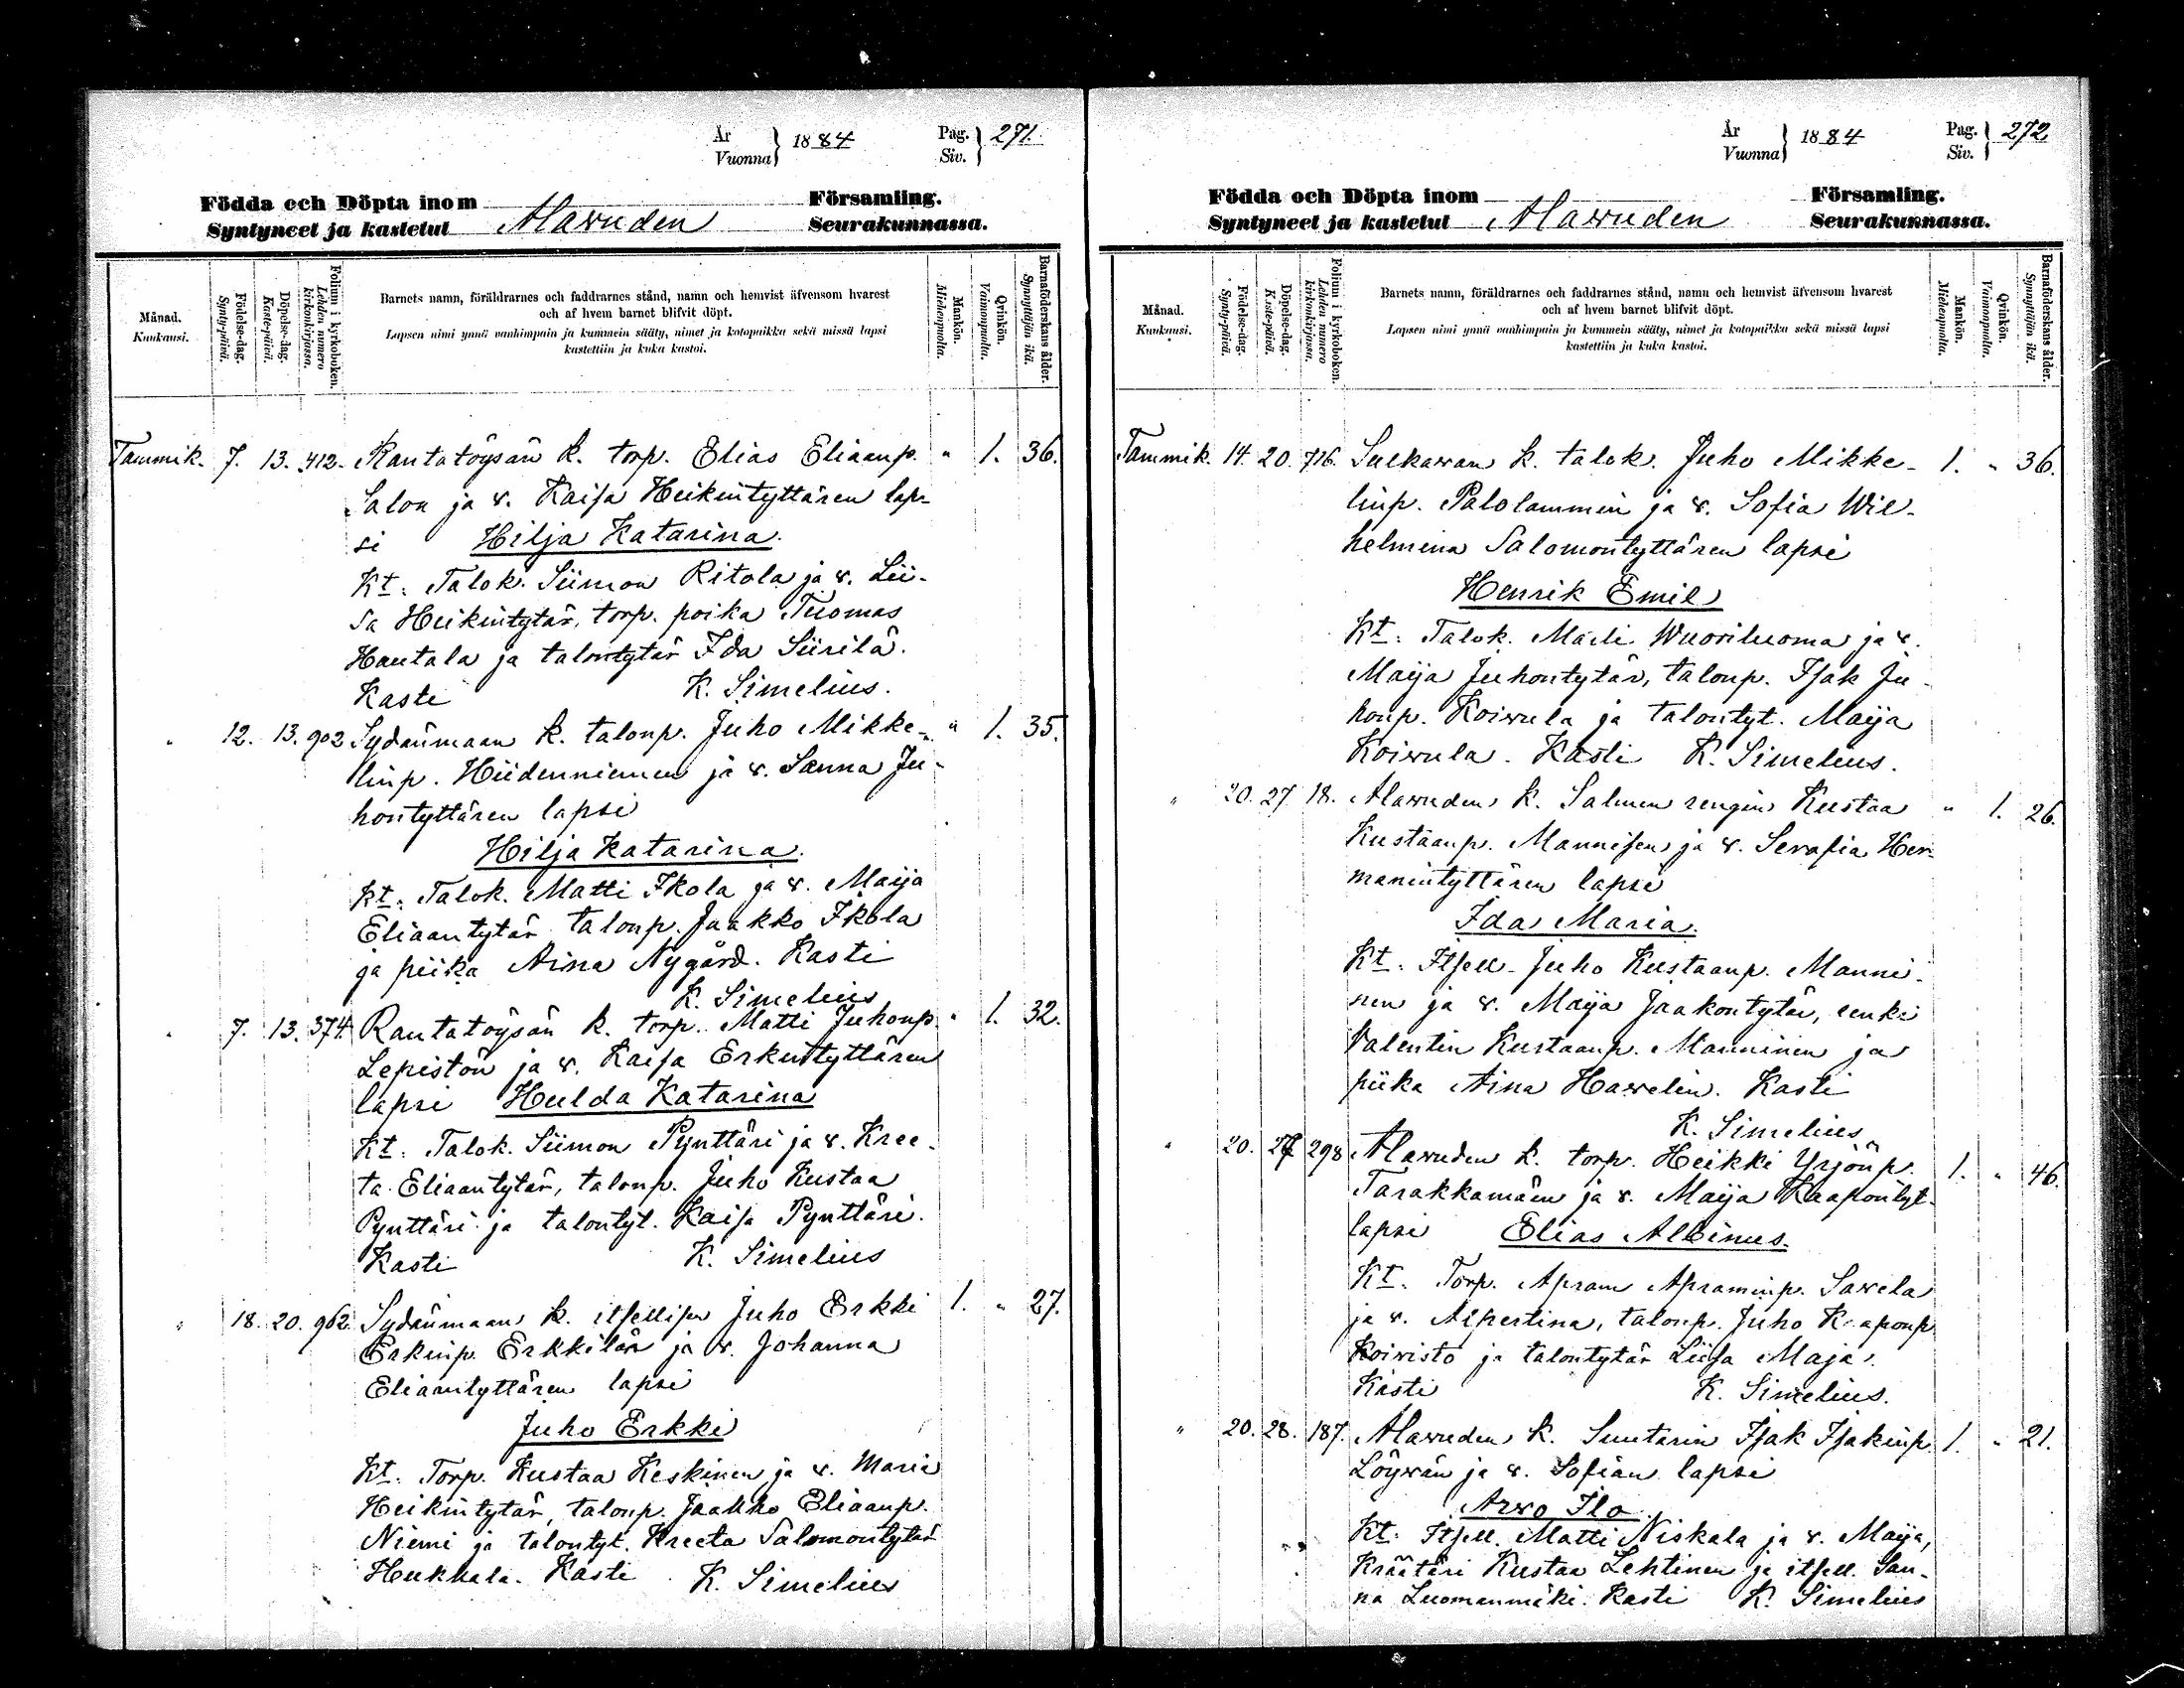 År
Vuonna } 1884 Pag.
Siv. } 271.
Födda och Döpta inom Församling.
Syntyneet ja kastetut Alavuden Seurakunnassa.
Månad.
Kuukausi.
Födelse-dag.
Synty-päivä.
Döpelse-dag.
Kaste-päivä.
Folium i kyrkoboken.
Lehden numero kirkonkirjassa.
Barnets namn, föräldrarnes och faddrarnes stånd, namn och hemvist äfvensom hvarest
och af hvem barnet blifvit döpt.
Lapsen nimi ynnä vanhimpain ja kummein sääty, nimet ja kotopaikka sekä missä lapsi
kastettiin ja kuka kastoi.
Mankön.
Miehenpuolta.
Qvinkön.
Vaimonpuolta.
Barnaföderskans ålder.
Synnyttäjän ikä.
Tammik. 7. 13. 412. Rantatöysän k. torp. Elias Eliaanp. " 1. 36.
Salon ja v. Kaisa Heikintyttären lap-
si Hilja Katarina.
Kt: Talok. Siimon Ritola ja v. Lii-
sa Heikintytär, torp. poika Tuomas
Hautala ja talontytär Ida Siirilä.
Kaste K. Simelius.
" 12. 13. 902 Sydänmaan k. talonp. Juho Mikke- " 1. 35.
linp. Hiidenniemen ja v. Sanna Ju-
hontyttären lapsi
Hilja Katarina.
Kt: Talok. Matti Ikola ja v. Maija
Eliaantytär talonp. Jaakko Ikola
ja piika Aina Nygård. Kasti
K. Simelius
" 7. 13. 374. Rantatöysän k. torp. Matti Juhonp. " 1. 32.
Lepistön ja v. Kaisa Erkintyttären
lapsi Hulda Katarina
Kt: Talok. Siimon Pynttäri ja v. Kree-
ta Eliaantytär, talonp. Juho Kustaa
Pynttäri ja talontyt. Kaisa Pynttäri.
Kasti K. Simelius
" 18. 20. 962. Sydänmaan k. itsellisen Juho Erkki 1. " 27.
Erkinp. Erkkilän ja v. Johanna
Eliantyttären lapsi
Juho Erkki
Kt: Torp. Kustaa Keskinen ja v. Maria
Heikintytär, talonp. Jaakko Eliaanp.
Niemi ja talontyt. Kreeta Salomontytär
Hukkala. Kasti K. Simelius
År
Vuonna } 1884 Pag.
Siv. } 272
Födda och Döpta inom Församling.
Syntyneet ja kastetut Alavuden Seurakunnassa.
Månad.
Kuukausi.
Födelse-dag.
Synty-päivä.
Döpelse-dag.
Kaste-päivä.
Folium i kyrkoboken.
Lehden numero kirkonkirjassa.
Barnets namn, föräldrarnes och faddrarnes stånd, namn och hemvist äfvensom hvarest
och af hvem barnet blifvit döpt.
Lapsen nimi ynnä vanhimpain ja kummein sääty, nimet ja kotopaikka sekä missä lapsi
kastettiin ja kuka kastoi.
Mankön.
Miehenpuolta.
Qvinkön.
Vaimonpuolta.
Barnaföderskans ålder.
Synnyttäjän ikä.
Tammik. 14. 20. 716. Sulkavan k. talok. Juho Mikke- 1. " 36.
linp. Palolammin ja v. Sofia Wil-
helmina Salomontyttären lapsi
Henrik Emil
Kt: Talok. Matti Wuoriluoma ja v.
Maija Juhontytär, talonp. Isak Ju-
honp. Koivula ja talontyt. Maija
Koivula. Kasti K. Simelius.
" 20. 27. 18. Alavuden k. Salmen rengin Kustaa " 1. 26.
Kustaanp. Mannisen ja v. Serafia Her-
manintyttären lapsi
Ida Maria.
Kt: Itsell. Juho Kustaanp. Manni-
nen ja v. Maija Jaakontytär, renki
Valentin Kustaanp. Manninen ja
piika Aina Havelin. Kasti
K. Simelius
" 20. 27 298 Alavuden k. torp. Heikki Yrjönp. 1. " 46.
Tarakkamäen ja v. Maija Kaapontyt.
lapsi Elias Albinus.
Kt. Torp. Apram Apraminp. Savela
ja v. Alpertina, talonp. Juho Kaaponp.
Koivisto ja talontytär Liisa Maja.
Kasti K. Simelius.
" 20. 28. 187. Alavuden k. Suutarin Isak Isakinp. 1. " 21.
Löyvän ja v. Sofian lapsi
Arvo Ilo.
Kt: Itsell. Matti Niskala ja v. Maija,
Kräätäri Kustaa Lehtinen ja itsell. San-
na Luomanmäki. Kasti K. Simelius